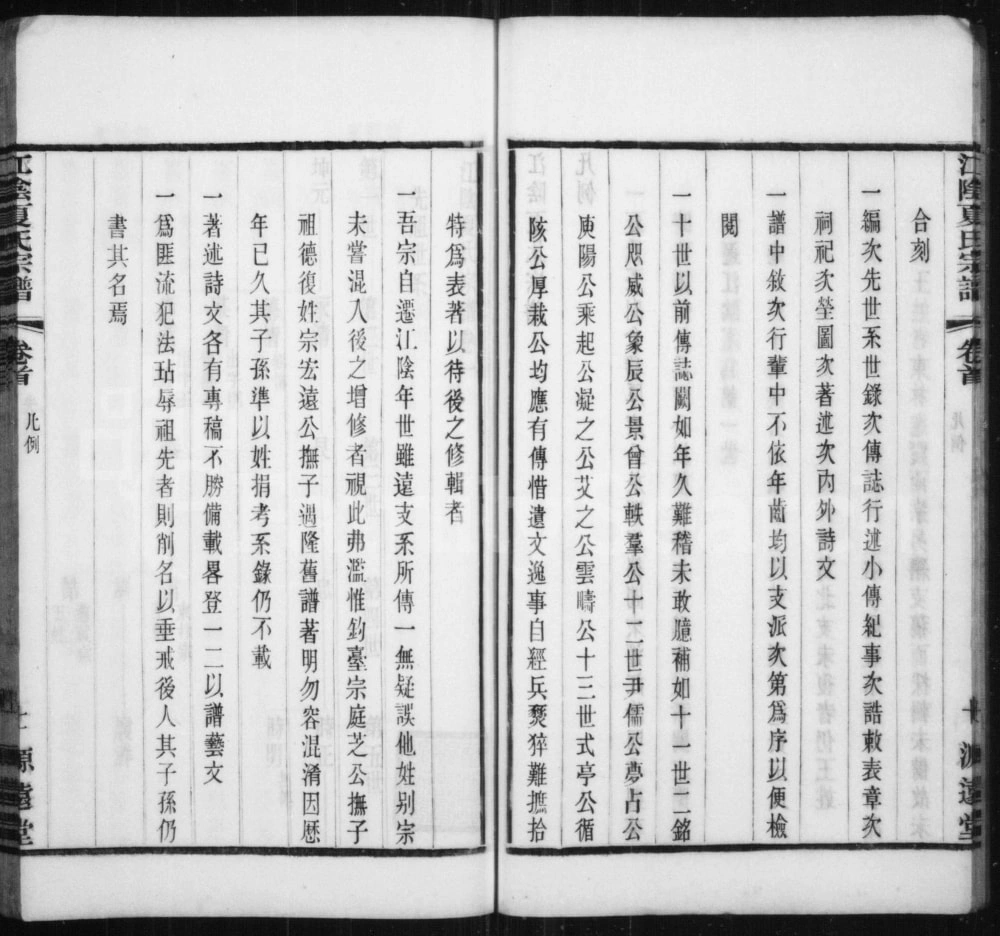 合刻
一編次先世系世錄次傳誌行述小傳紀事次誥敕表章次
祠祀次塋圖次著述次內外詩文
一譜中敘次行輩中不依年齒均以支派次第爲序以便檢
閱
一十世以前傳誌闕如年久難稽未敢臆補如十一世二銘
公思威公象辰公景曾公軼羣公十二世尹儒公夢占公
庚陽公乘起公凝之公艾之公雲疇公十三世式亭公循
陔公厚栽公均應有傳惜遺文逸事自經兵燹猝難摭拾
特爲表著以待後之修輯者
一吾宗自遷江陰年世雖遠支系所傳一無疑誤他姓别宗
未嘗混入後之增修者視此弗濫惟鈞臺宗庭芝公撫子
祖德復姓宗宏遠公撫子遇隆舊譜著明勿容混淆因歷
年已久其子孫準以姓捐考系錄仍不載
一著述詩文各有專稿不勝備載畧登一二以譜藝文
一爲匪流犯法玷辱祖先者則削名以垂戒後人其子孫仍
書其名焉
江陰夏氏宗譜
卷首
凡例
十
源遠堂
江陰夏氏宗譜
卷首
凡例
源遠堂